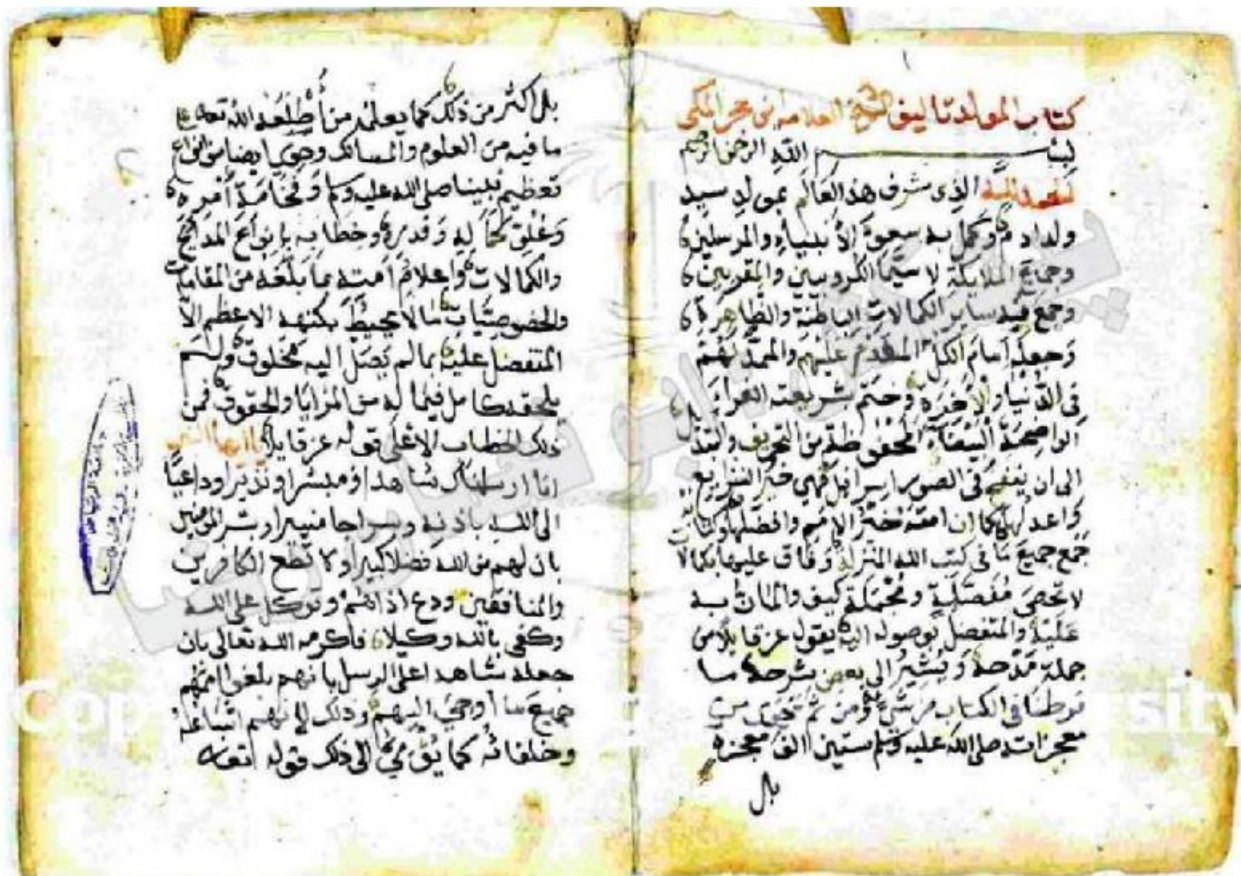 كتاب المولد تاليف الشيخ العلامة ابن حجر المكى
بسم الله الرحمن الرحيم
الحمد لله الذى شرف هذا العالم بمولد سيد
ولد ادم وكمل به سعود الانبياء والمرسلين
وجميع الملايكة لا سيما الكروبيين والمقربين
وجمع فيه ساير الكمالات الباطنة والظاهرة
وجعله امام الكل المقدم عليهم والممد لهم
فى الدنيا والاخرة وختم بشريعته الغراء
الواضحة البيضاء المحفوظة من التحريف والتبديل
الى ان ينفخ فى الصور اسرافيل فهى خير الشرايع
واعدلها كما ان امته خير الامم وافضلها وكتابه
جمع جميع ما فى كتب الله المنزلة وفاق عليها بكمالات
لا تحصى مفصلة ومجملة كيف والمان به
عليه والمتفضل بوصوله اليه يقول عز قايلا من
جملة مدحه ويشير الى بعض شرحه ما
فرطنا فى الكتاب من شئ ومن ثم تحوى من
معجزاته صلى الله عليه وسلم ستين الف معجزة
بل
بل اكثر من ذلك كما يعلمه من اطلعه الله تعه على
ما فيه من العلوم والمسالك وحوى ايضا من انواع
تعظيم نبينا صلى الله عليه وسلم وفخامة امره
وعلو كماله وقدره وخطابه بانواع المدايح
والكمالات واعلام امته بما بلغه من المقامات
والخصوصيات ما لا يحيط بكنهه الاعظم الا
المتفضل عليه بما لم يصل اليه مخلوق ولم
يلحقه كامل فيما له من المزايا والحقوق فمن
ذلك الخطاب الاعلى قوله عز قايلا يا ايها النبى
انا ارسلناك شاهدا ومبشرا ونذيرا وداعيا
الى الله باذنه وسراجا منيرا وبشر المومنين
بان لهم من الله فضلا كبيرا ولا تطع الكافرين
والمنافقين ودع اذاهم وتوكل على الله
وكفى بالله وكيلا فاكرمه الله تعالى بان
جعله شاهدا على الرسل بانهم بلغوا اممهم
جميع ما اوحى اليهم وذلك لانهم اتباعه
وخلفائه كما يومى الى ذلك قوله تعه